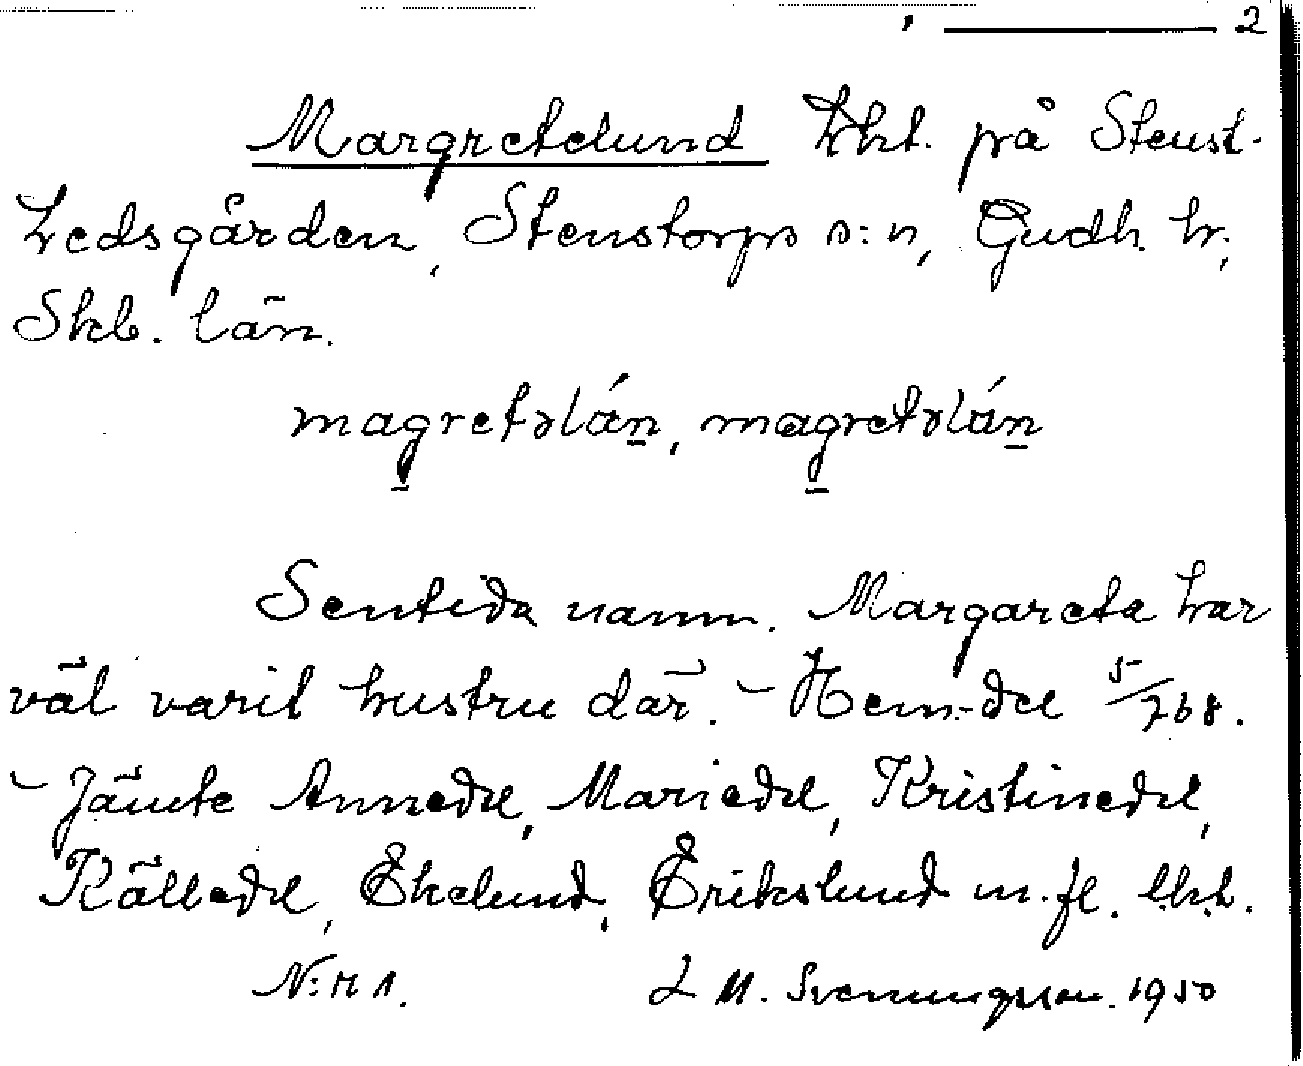 2
Margretelund lht. på Stenst-
Hedsgården, Stenstorps s:n, Gudh. hr;
Skb. län.
magretəlún, magretəlún
Sentida namn. Margareta har
väl varit hustru där. – Hem. del 5/768.
– Jämte Annedal, Mariedal, Kristinedal,
Källedal, Ekelund, Erikslund m. fl. lht.
N:r 1. L M. Svenungsson. 1950